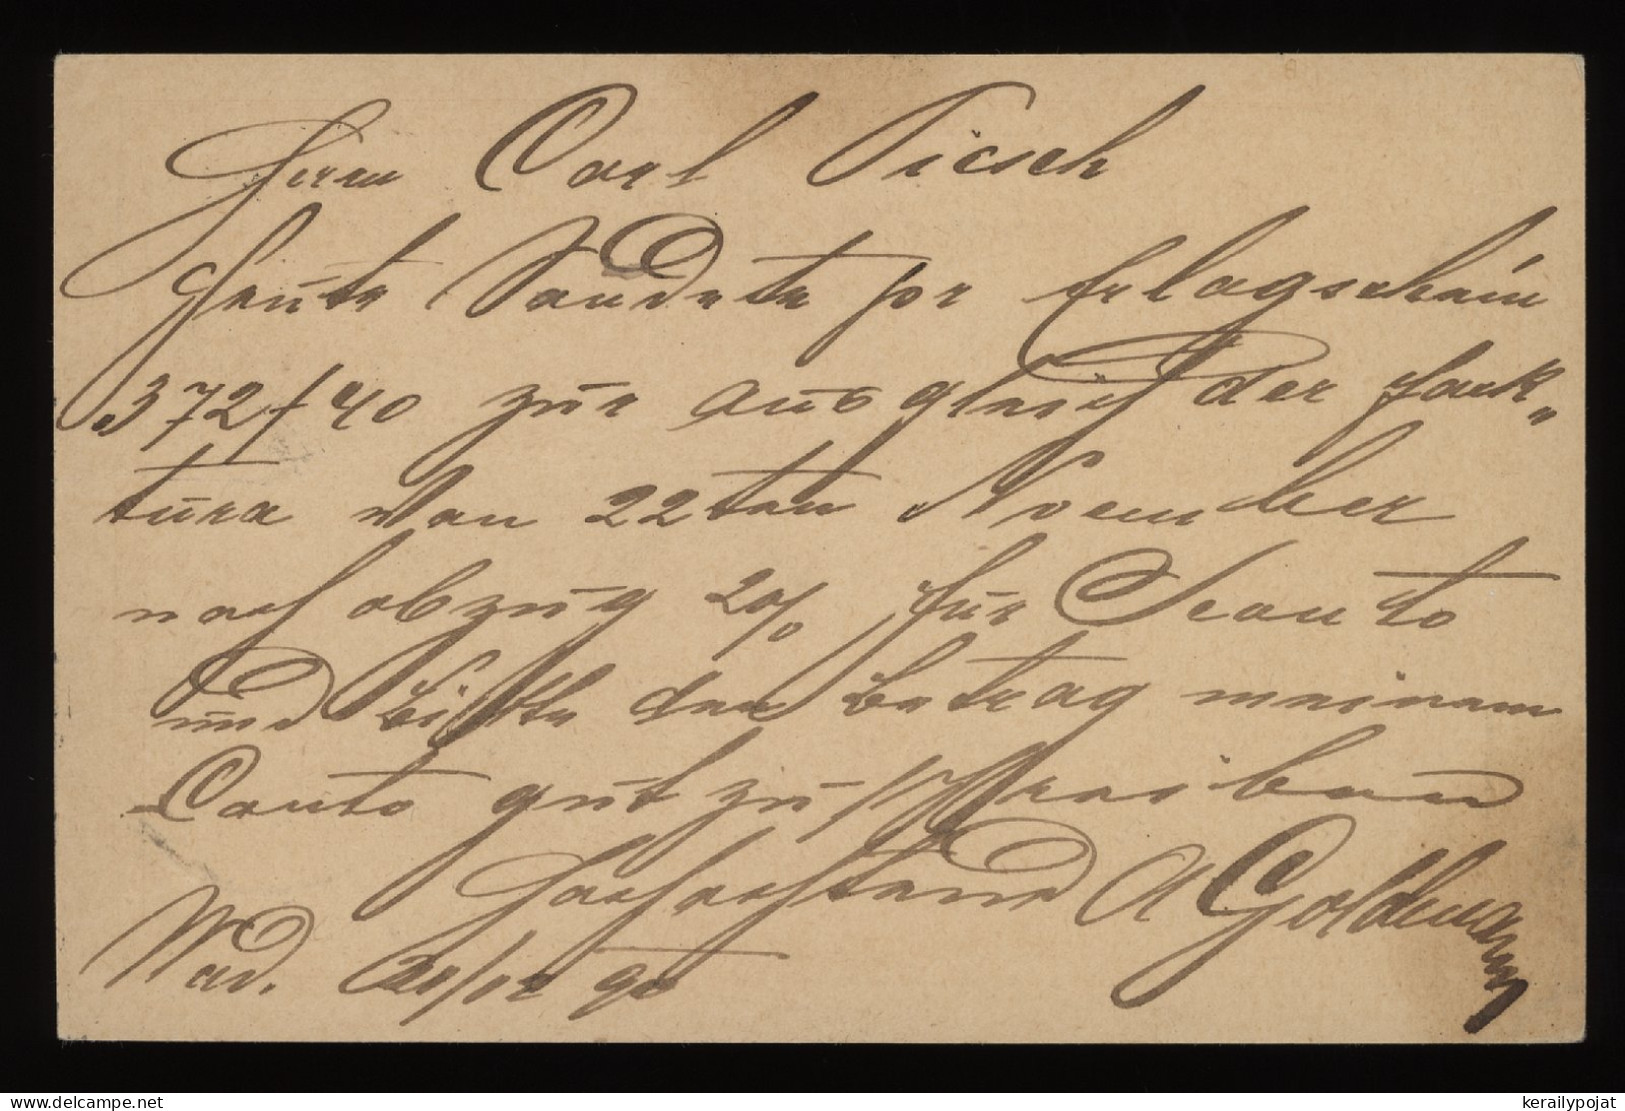 Herrn Carl Piesch
Heute Sandete per Erlagschein
f 372/40 zur ausgleich der Fack„
tura von 22ten November
nach abzug 2% für Sconto
und bitte den betrag meinem
Conto gutzuschreiben
Hochachtend A Goldmann
Wad. 20/12 90
www.delcampe.net
kerailypojat